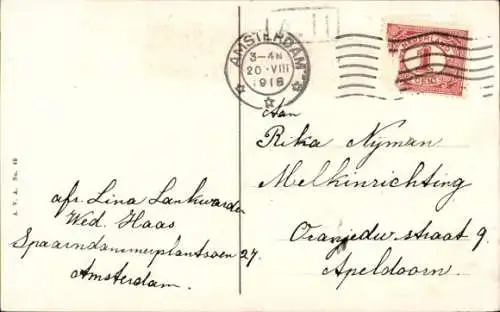 AMSTERDAM
3-4N
20·VIII
1918
NEDERLAND
1
CENT
Aan
Rika Nyman
Melkinrichting
Oranjedw. straat 9
Apeldoorn.
afz. Lina Lankwarden
Wed. Haas
Spaarndammerplantsoen 27.
Amsterdam.
A. V. A. No. 19